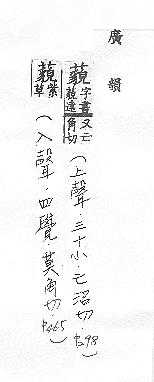 廣韻
藐字書藐遠又亡角切(上聲．三十小．亡沼切．p298)
藐紫草(入聲．四覺．莫角切p465)